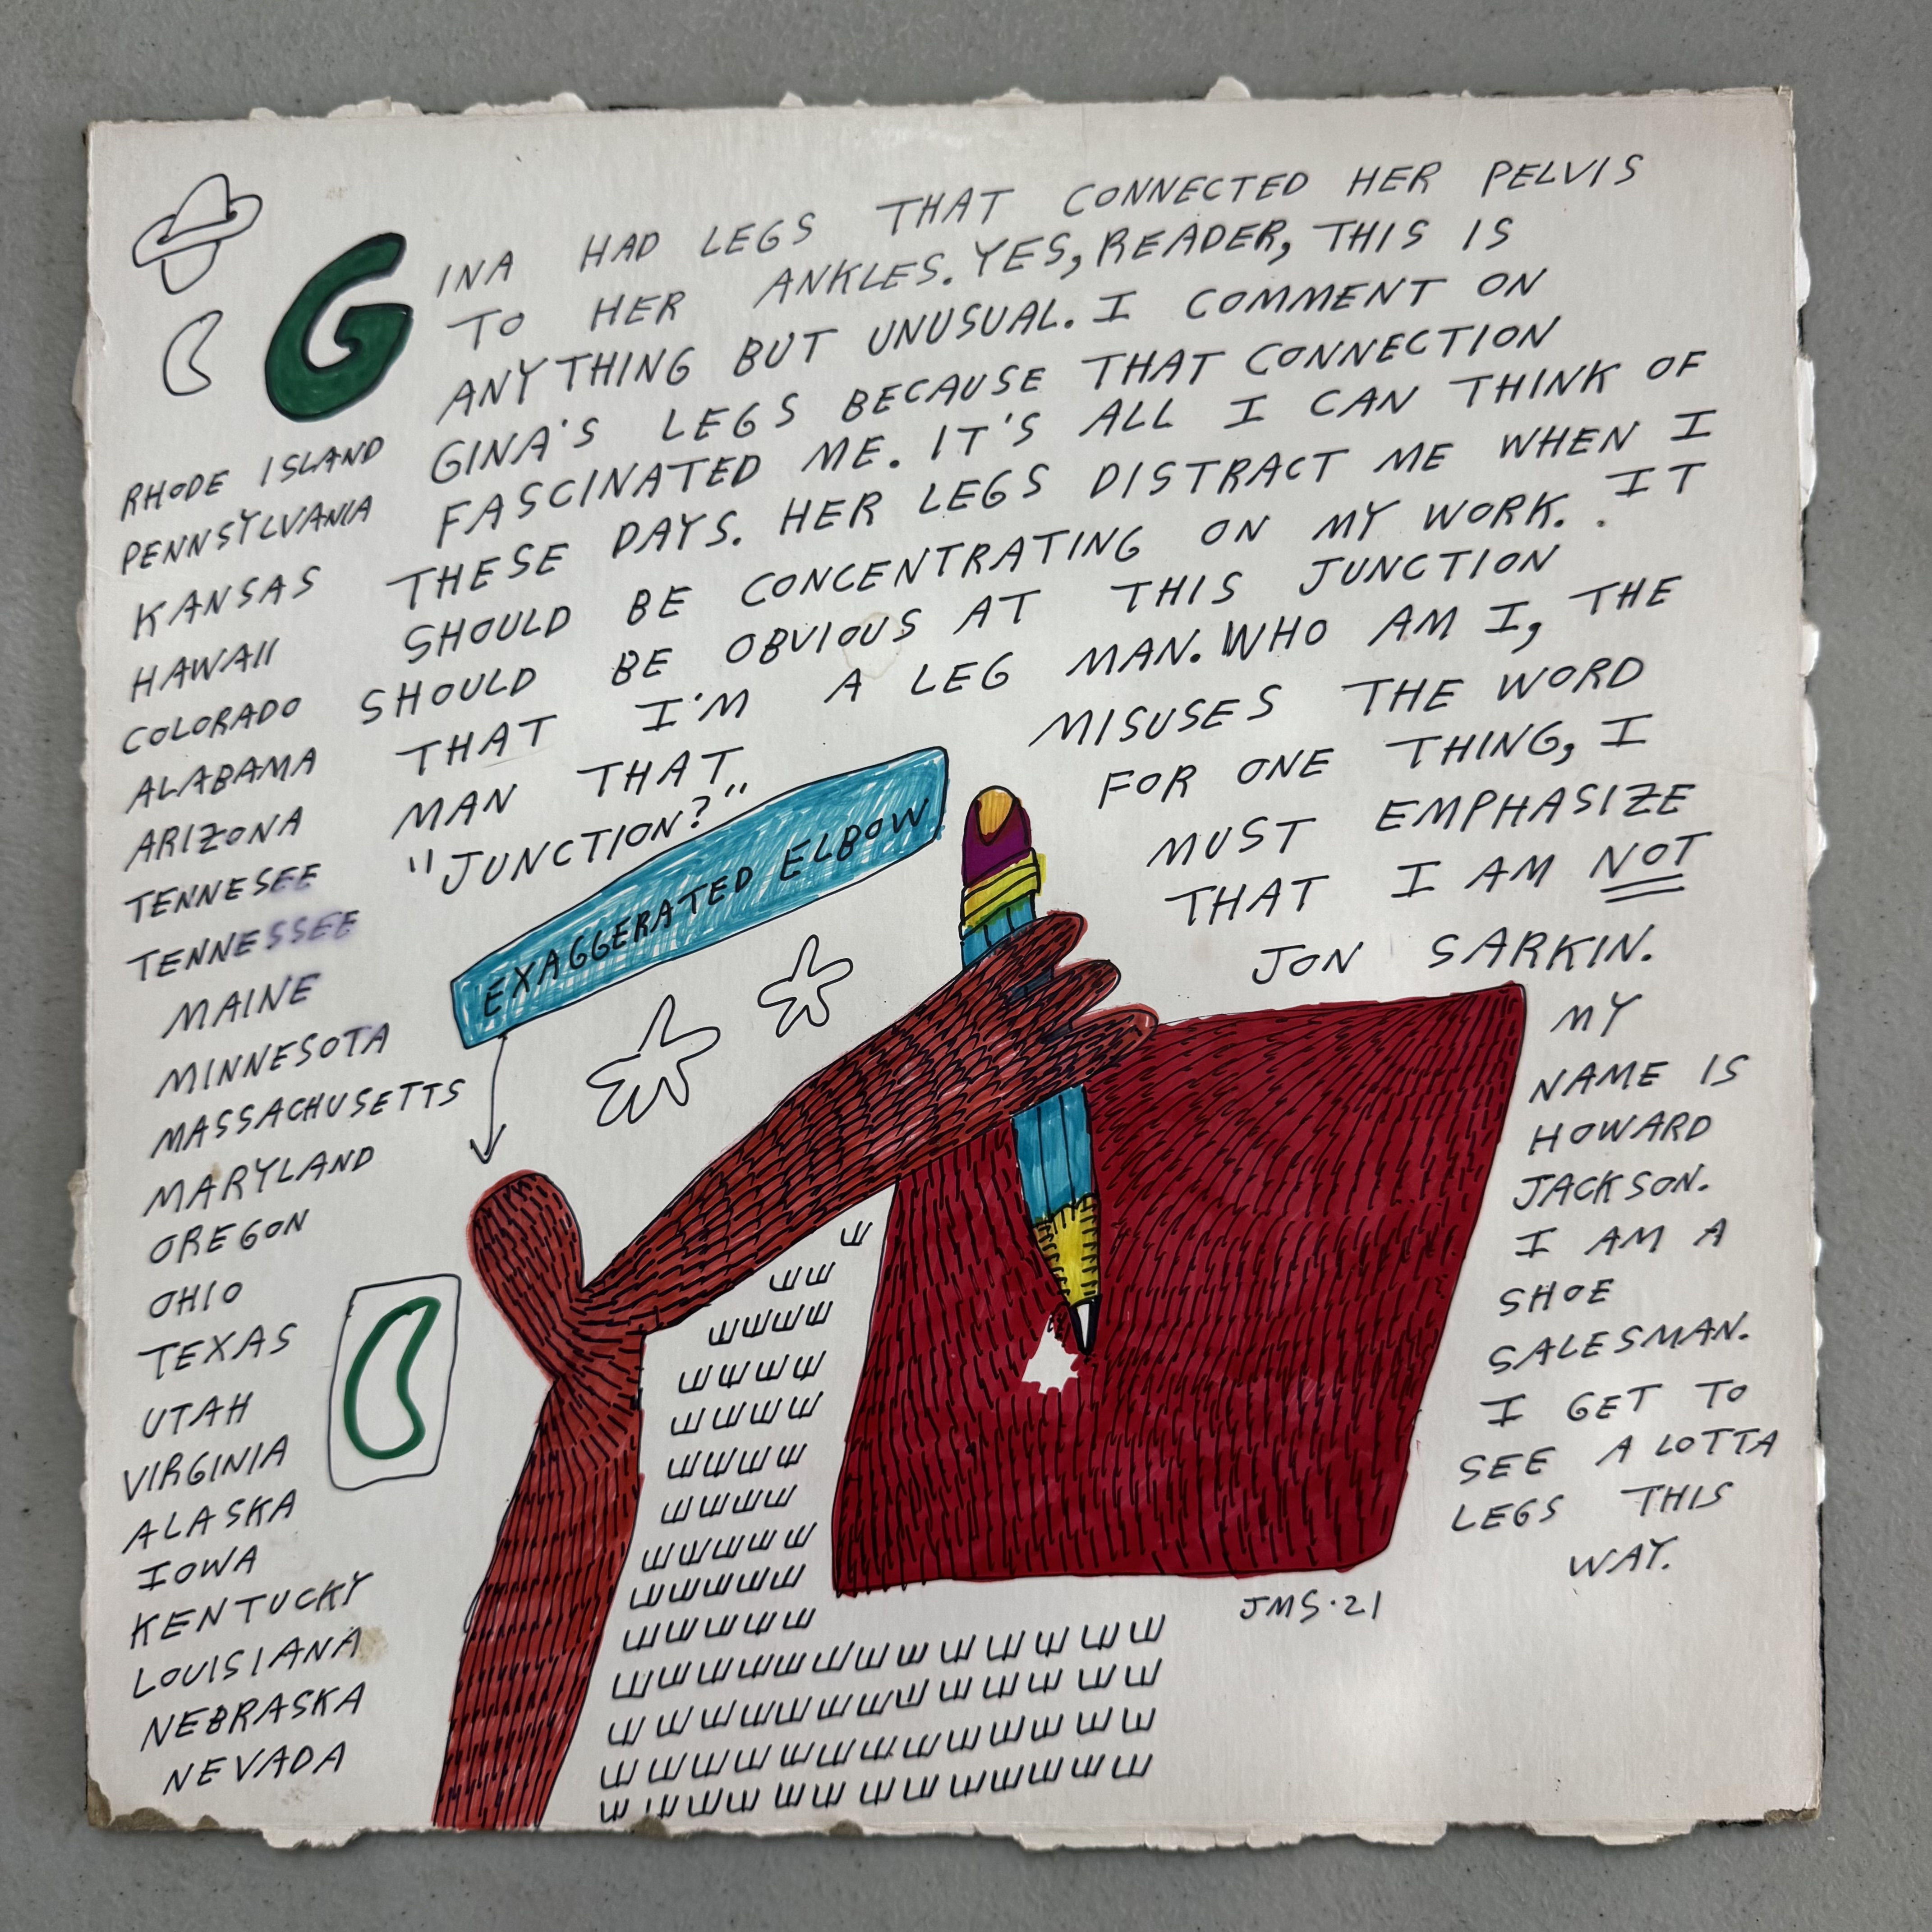 GINA HAD LEGS THAT CONNECTED HER PELVIS
TO HER ANKLES. YES, READER, THIS IS
ANYTHING BUT UNUSUAL. I COMMENT ON
GINA'S LEGS BECAUSE THAT CONNECTION
FASCINATED ME. IT'S ALL I CAN THINK OF
THESE DAYS. HER LEGS DISTRACT ME WHEN I
SHOULD BE CONCENTRATING ON MY WORK. IT
SHOULD BE OBVIOUS AT THIS JUNCTION
THAT I'M A LEG MAN. WHO AM I, THE
MAN THAT MISUSES THE WORD
"JUNCTION?" FOR ONE THING, I
MUST EMPHASIZE
THAT I AM NOT
JON SARKIN.
MY
NAME IS
HOWARD
JACKSON.
I AM A
SHOE
SALESMAN.
I GET TO
SEE A LOTTA
LEGS THIS
WAY.
RHODE ISLAND
PENNSYLVANIA
KANSAS
HAWAII
COLORADO
ALABAMA
ARIZONA
TENNESEE
TENNESSEE
MAINE
MINNESOTA
MASSACHUSETTS
MARYLAND
OREGON
OHIO
TEXAS
UTAH
VIRGINIA
ALASKA
IOWA
KENTUCKY
LOUISIANA
NEBRASKA
NEVADA
EXAGGERATED ELBOW
JMS·21